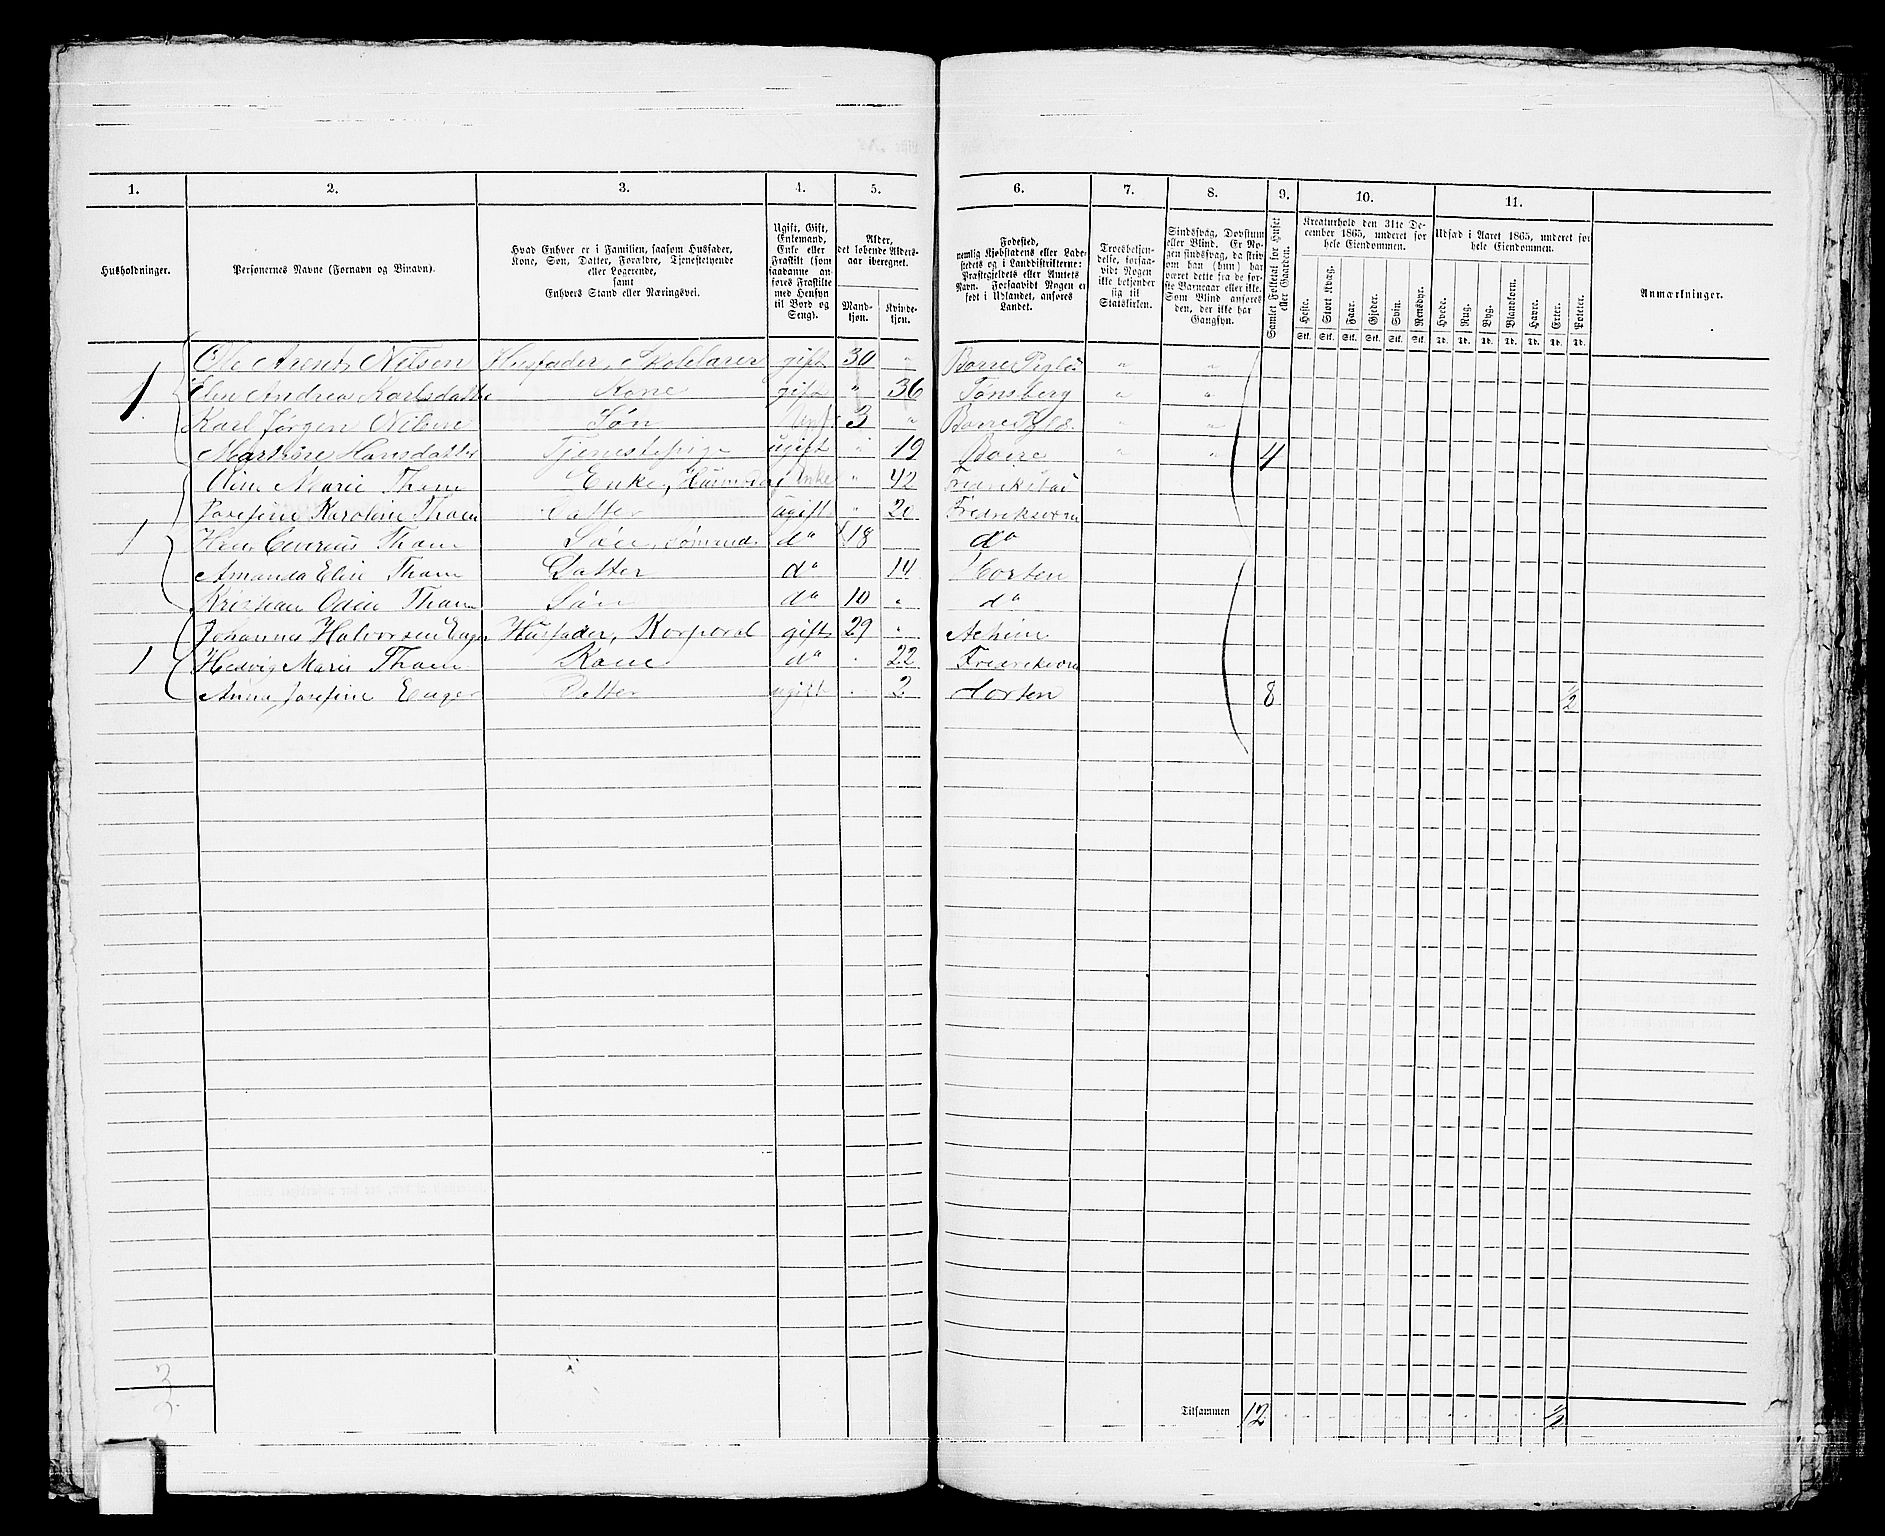 1. 2. 3. 4. 5. 6. 7. 8. 9. 10. 11.
Husholdninger.
Personernes Navne (Fornavn og Binavn).
Hvad Enhver er i Familien, saasom Husfader,
Kone, Søn, Datter, Forældre, Tjenestetyende
eller Logerende,
samt
Enhvers Stand eller Næringsvei.
Ugift, Gift,
Enkemand,
Enke eller
Fraskilt (som
saadanne an-
føres Fraskilte
med Hensyn
til Bord og
Seng).
Alder,
det løbende Alders-
aar iberegnet.
Mand-
kjøn.
Kvinde-
kjøn.
Fødested,
nemlig Kjøbstadens eller Lade-
stedets og i Landdistrikterne:
Præstegjeldets eller Amtets
Navn. Forsaavidt Nogen er
født i Udlandet, anføres
Landet.
Troesbekjen-
delse, forsaa-
vidt Nogen
ikke bekjender
sig til
Statskirken.
Sindssvag, Døvstum
eller Blind. Er No-
gen sindssvag, da skriv
om han (hun) har
været dette fra de før-
ste Barneaar eller ikke.
Som Blind anføres
den, der ikke har
Gangsyn.
Samlet Folketal for Huset
eller Gaarden.
Kreaturhold den 31te De-
cember 1865, underet for
hele Eiendommen.
Heste. Stort Kvæg. Faar. Gjeder. Svin. Rensdyr.
Stk. Stk. Stk. Stk. Stk. Stk.
Udsæd i Aaret 1865, underet for
hele Eiendommen.
Hvede. Rug. Byg. Blandkorn. Havre. Erter. Poteter.
Td. Td. Td. Td. Td. Td. Td.
Anmærkninger.
Nilsen Husfader, Skolelærer gift 30 " Borre " "
1 Andrea Karlsdatter Kone gift " 36 Tønsberg " "
Karl Jørgen Nilsen Søn 3 " Borre " "
Hansdatter Tjenestepige ugift " 19 Borre " " 4
Marie Tham Enke, Enke " 42
Josefine Karoline Tham Datter ugift " 20 Fredriksværn
1 Tham Søn, Sømand do 18 do
Amanda Elise Tham Datter do 14 Horten
Kristian Tham Søn do 10 " do
Johannes Halvorsen Enger Husfader, Korporal gift 29 "
1 Hedvig Marie Tham Kone do 22 Fredriksværn
Anna Josefine Enger Datter ugift 2 Horten 8 ½
3
Tilsammen 12 ½